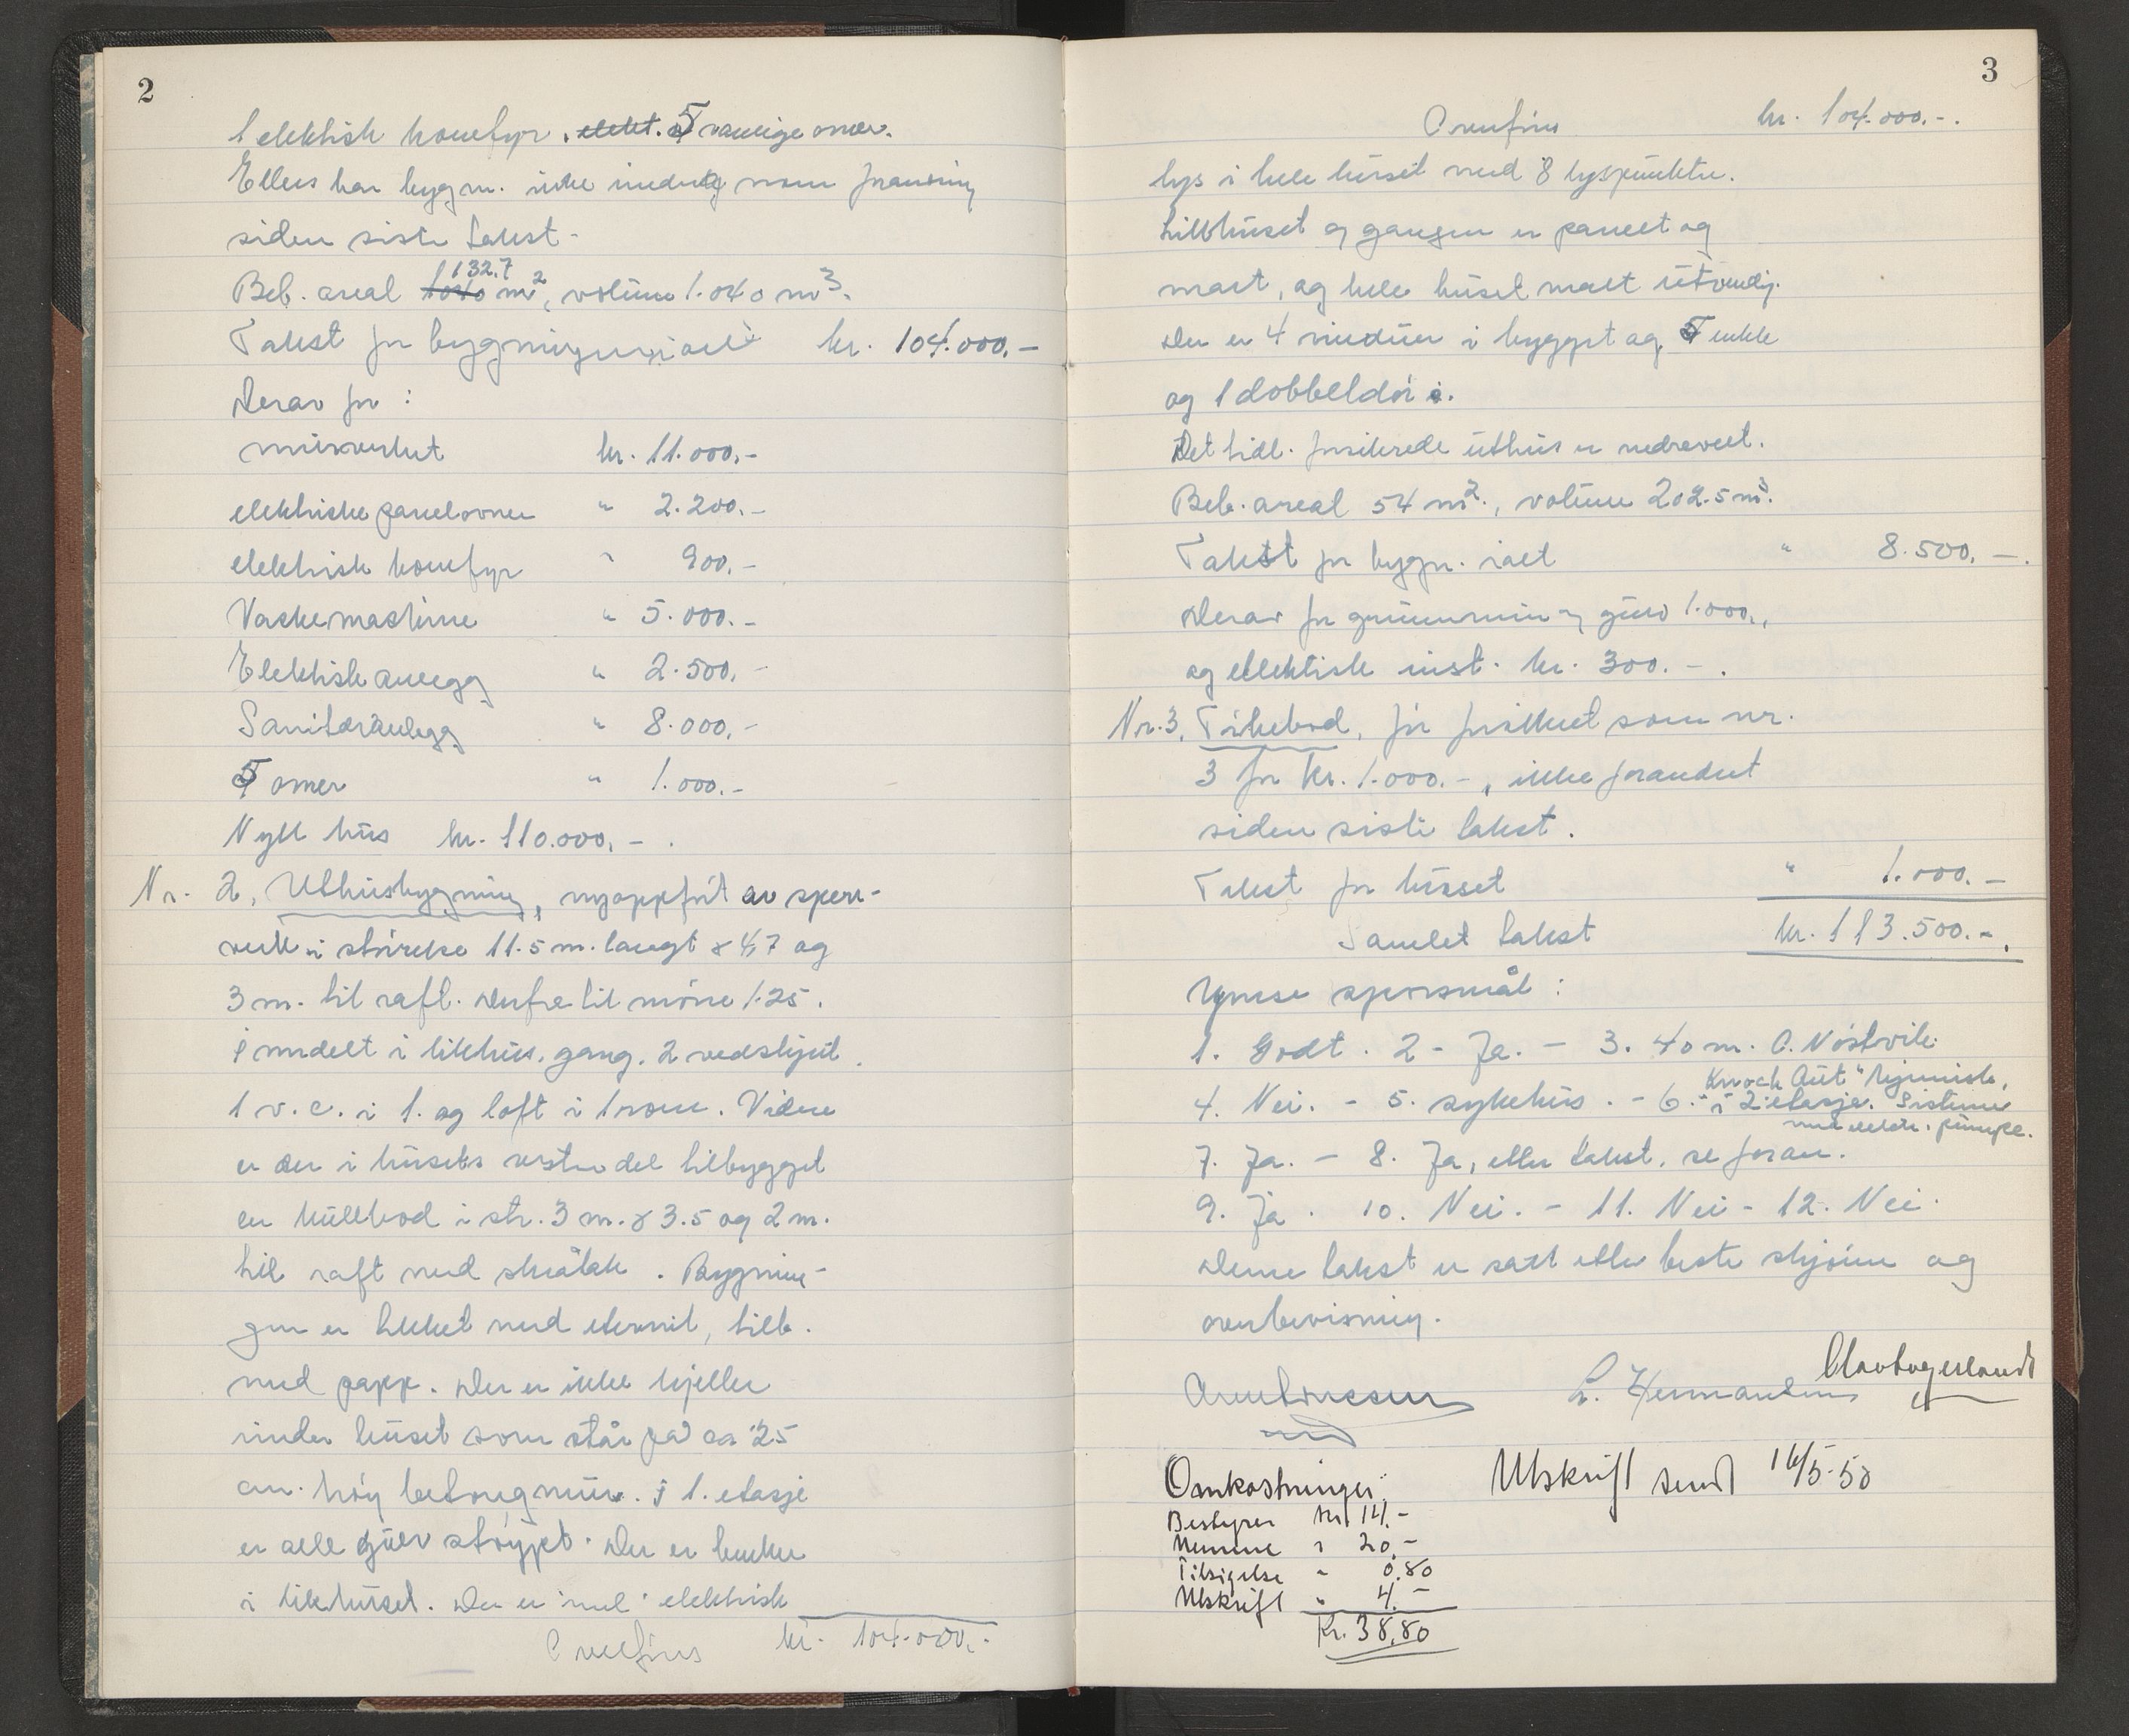 2
1 elektrisk komfyr, elekt. 5 vanlige ovner.
Ellers har bygn. ikke undergått noen forandring
siden siste takst.
Beb. areal 1040 132.7 m², volum 1.040 m³.
Takst for bygningen ialt kr. 104.000.-
Derav for:
murverket kr. 11.000.-
elektriske panelovner " 2.200.-
elektrisk komfyr " 900.-
Vaskemaskine " 5.000.-
Elektrisk anlegg " 2.500.-
Sanitæranlegg " 8.000.-
5 ovner " 1.000.-
Nytt hus kr. 110.000.-.
Nr. 2, Uthusbygning, nyoppført av sperr-
verk i størrelse 11.5 m. langt x 4,7 og
3 m. til raft. Derfra til møne 1.25.
Inndelt i likhus, gang, 2 vedskjul
1 v.c. i 1. og loft i 1 rom. Videre
er der i husets vestre del tilbygget
en kullbod i str. 3 m. x 3.5 og 2 m.
til raft med skråtak. Bygnin-
gen er tekket med eternit, tilb.
med papp. Der er ikke kjeller
under huset som står på ca 25
cm. høy betongmur. I 1. etasje
er alle gulv støypt. Der er benker
i likhuset. Der er innl. elektrisk
Overføres kr. 104.000.-.
3
Overføres kr. 104.000.-.
lys i hele huset med 8 lyspunkter.
Likhuset og gangen er panelt og
malt, og hele huset malt utvendig.
Der er 4 vinduer i bygget og 5 enkle
og 1 dobbeldør i.
Det tidl. forsikrede uthus er nedrevet.
Beb. areal 54 m²., volum 202.5 m³.
Takst for bygn. ialt " 8.500.-.
Derav for grunnmur og gulv 1.000.,
og elektrisk inst. kr. 300.-.
Nr. 3. Tørkebod, før forsikret som nr.
3 for kr. 1.000.-, ikke forandret
siden siste takst.
Takst for husset " 1.000.-
Samlet takst kr. 113.500.-.
Ymse spørsmål:
1. Godt. 2 - Ja. - 3. 40 m. O. Nøstvik.
4. Nei. - 5. sykehus. - 6. "Knock Out" i 2 etasje.
med elektr. pumpe.
7. Ja. - 8. Ja, etter takst, se foran.
9. Ja. 10. Nei. - 11. Nei - 12. Nei.
Denne takst er satt etter beste skjønn og
overbevisning.
L. Hermansen
Omkostninger:
Utskrift sendt 16/5-50
Bestyrer kr 14.-
Menne " 20.-
Tilsigelse " 0.80
Utskrift " 4.-
Kr. 38,80